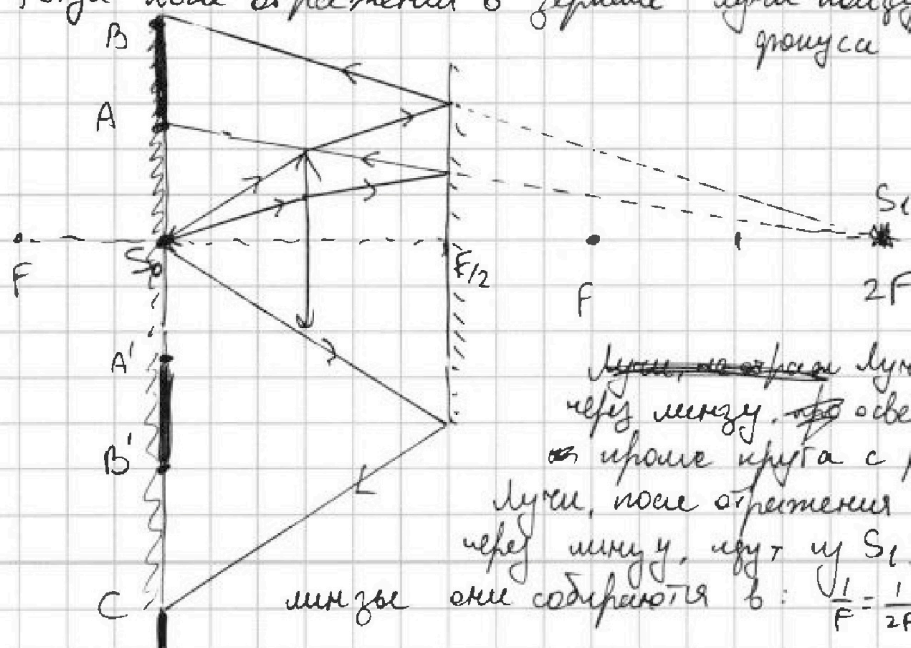 после отражения в зеркале лучи
фокуса
B
A
S₁
S₀
F
F/2
F
2F
A'
Луч
через линзу. осве
B'
кроме круга с
Лучи, после отражения
через линзу, идут из S₁
C
линзы они собираются в: 1/F = 1/2F